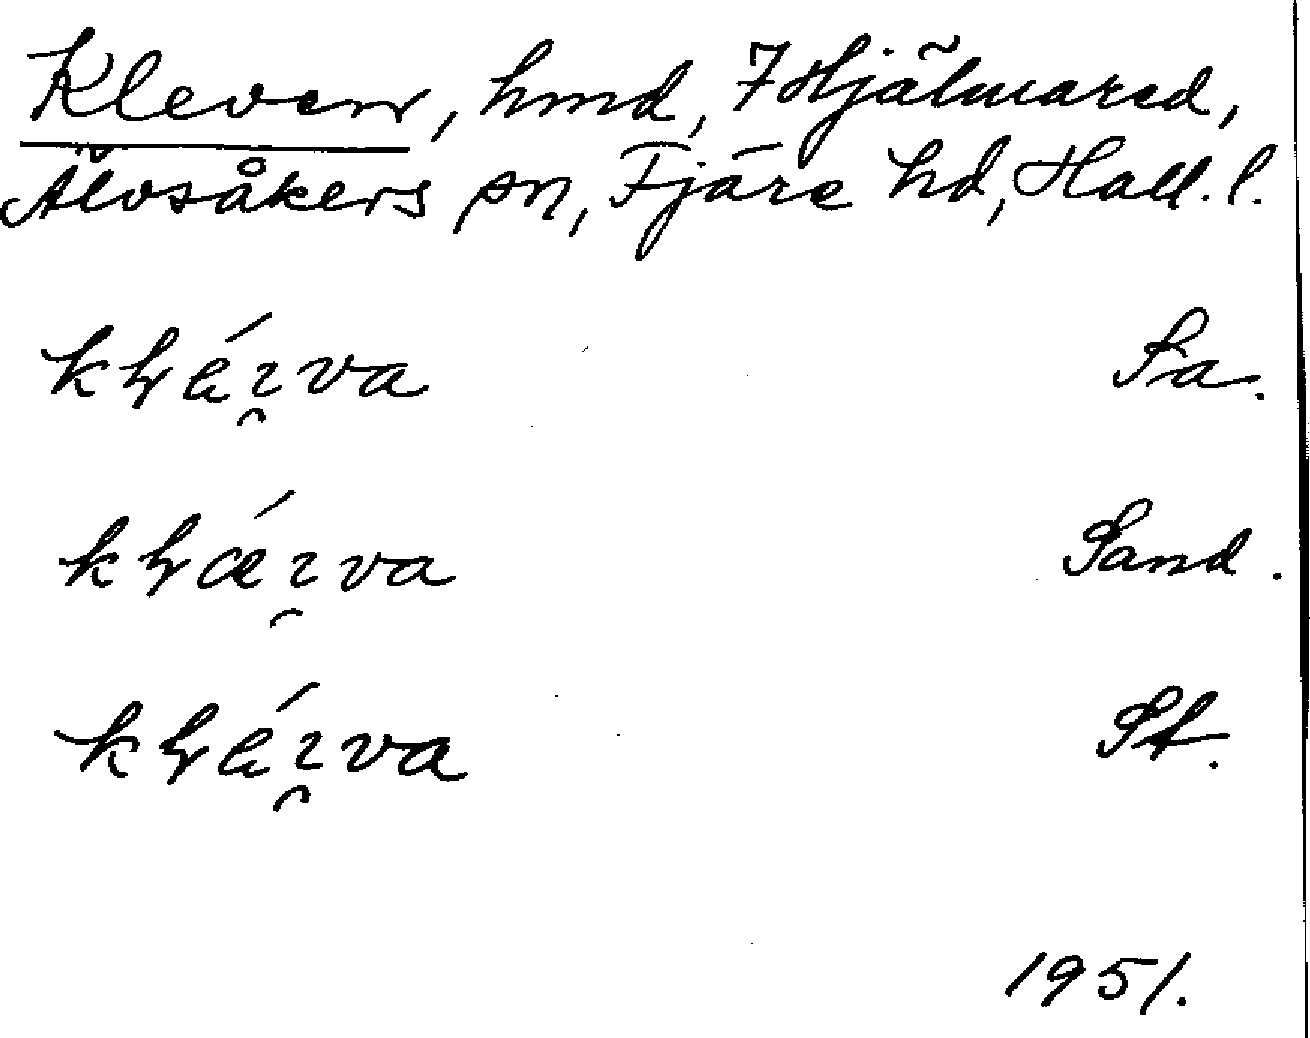 Kleven, hmd, 7 Hjälmared,
Älvsåkers sn, Fjäre hd, Hall. l.
kḷéɪ̯va Sa.
kḷǽɪ̯va Sand.
kḷéɪ̯va St.
1951.